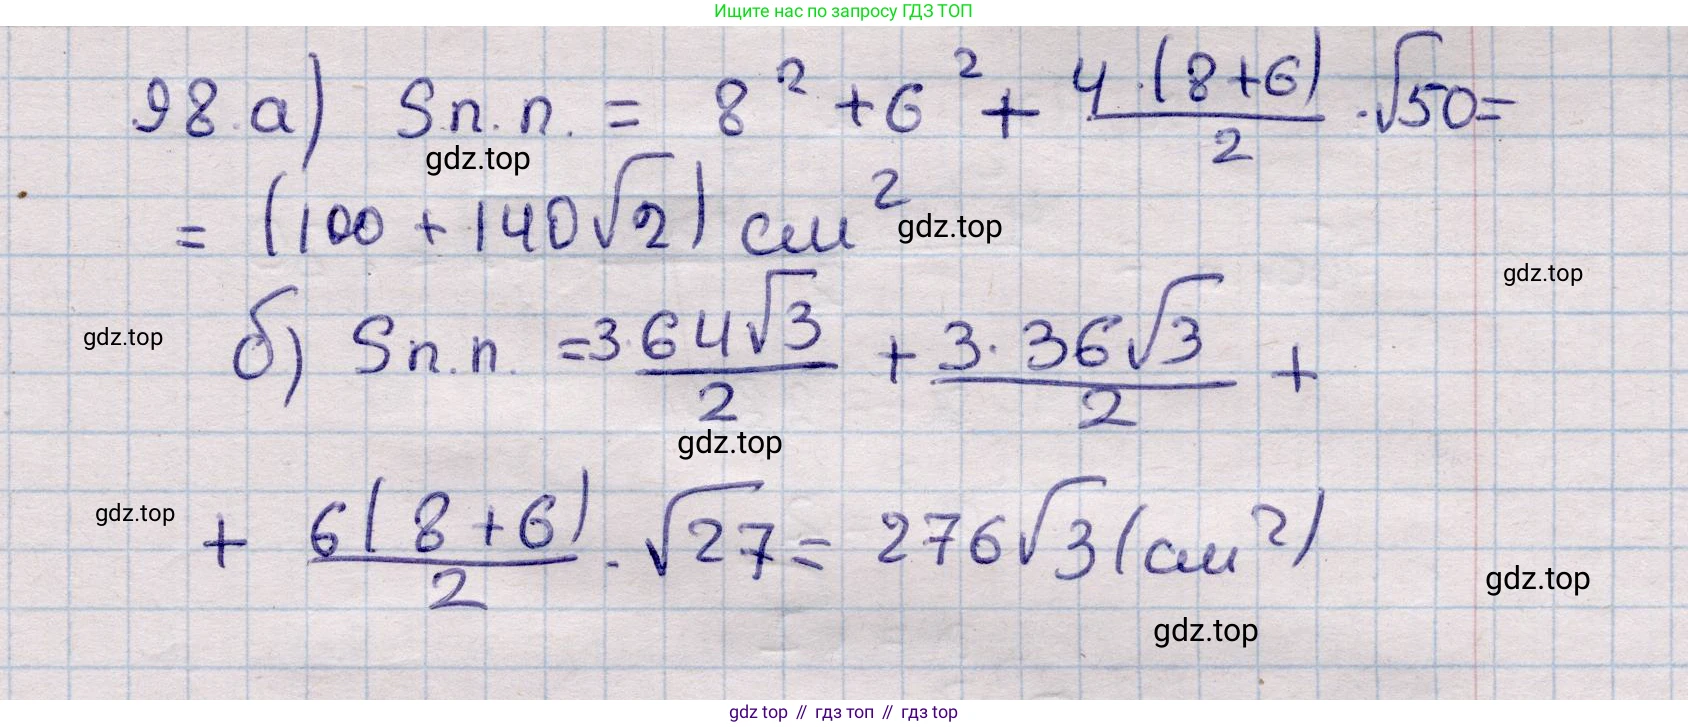 Ищите нас по запросу ГДЗ ТОП
98.a) Sп.п. = 8² + 6² + 4·(8+6)/2 · √50 =
gdz.top
= (100 + 140√2) см²
gdz.top
gdz.top
gdz.top
б) Sп.п. = 3·64√3/2 + 3·36√3/2 +
gdz.top
gdz.top
+ 6(8+6)/2 · √27 = 276√3 (см²)
gdz.top
gdz.top
gdz.top // гдз топ // гдз top